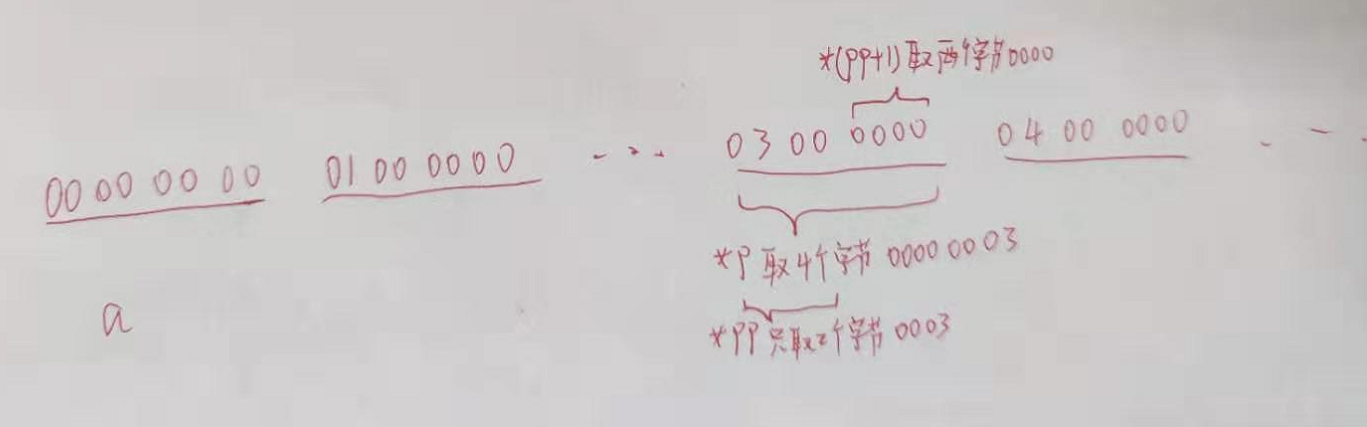 *(pp+1) 取两个字节0000
00 00 00 00 01 00 0000 --- 03 00 0000 04 00 0000 - -
*p 取4个字节 0000 0003
a
*pp 只取2个字节 0003